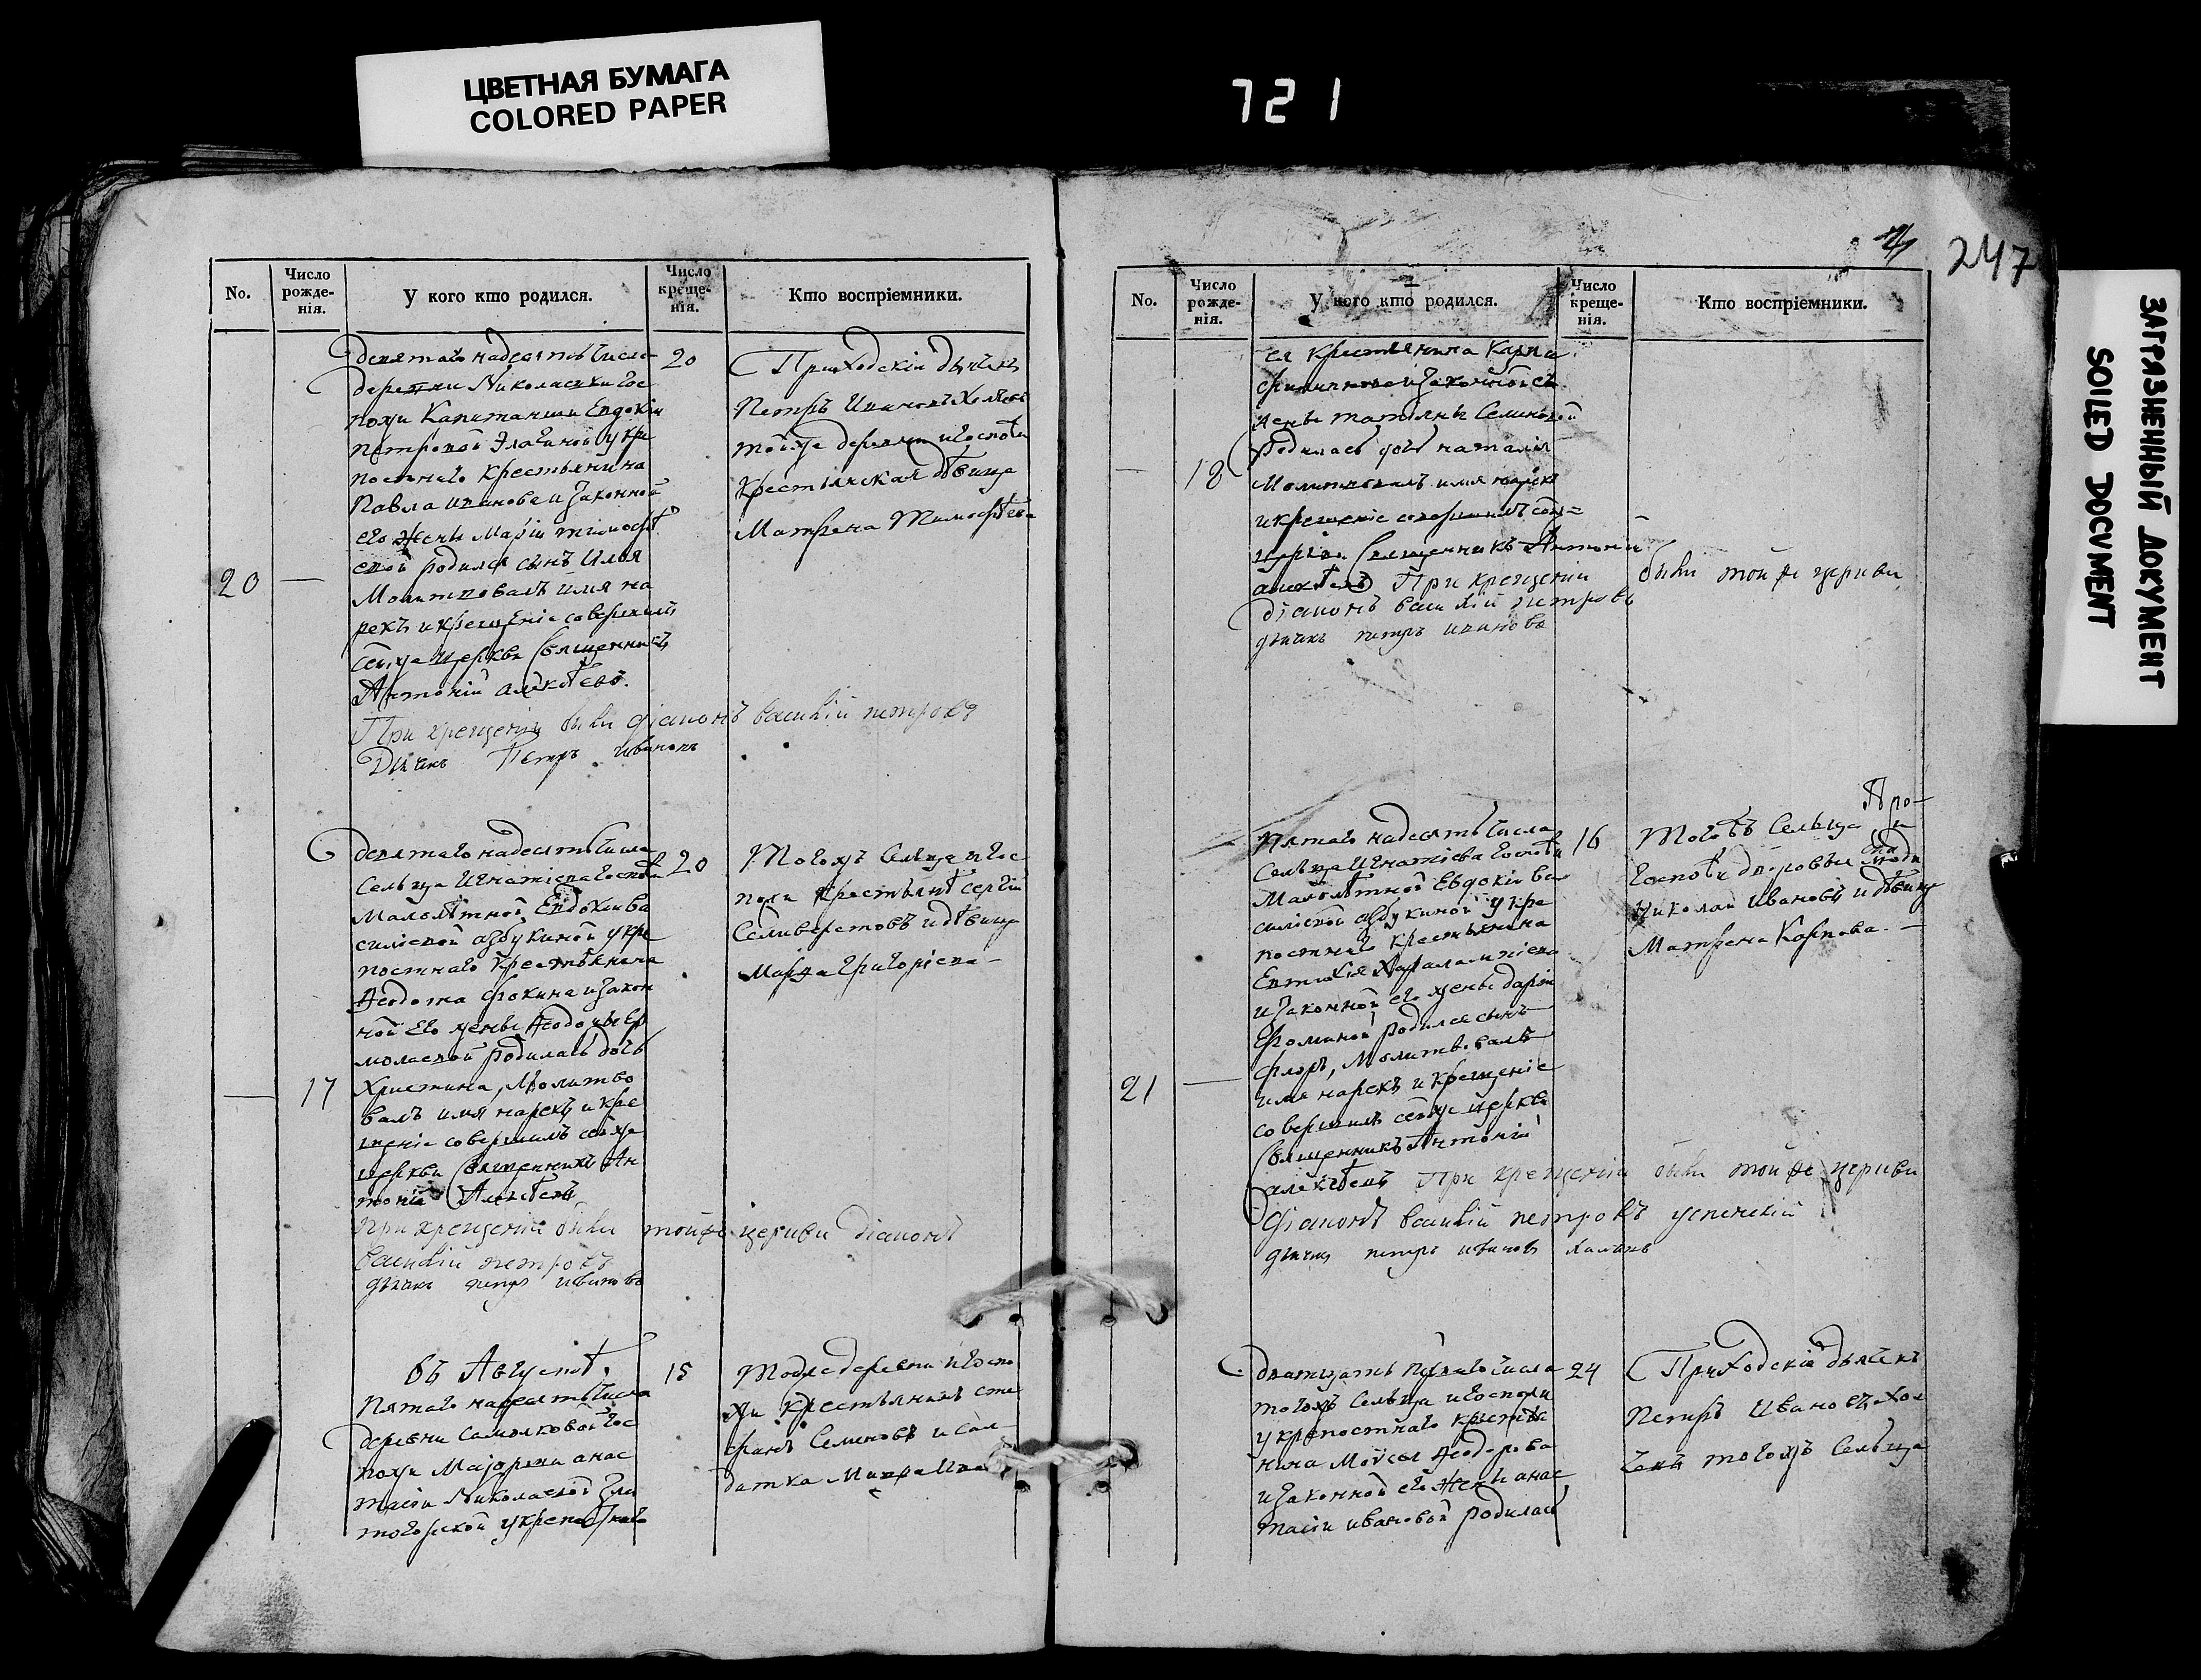 ЦВЕТНАЯ БУМАГА
COLORED PAPER
721
247
ЗАГРЯЗНЕННЫЙ ДОКУМЕНТ
SOILED DOCUMENT
No.
Число рожде-нія.
У кого кто родился.
Число креще-нія.
Кто воспріемники.
девятаго надесять числа
деревни Николаевки гос
пожи Капитанши Евдокіи
Петровой Элагиной у кре
постнаго крестьянина
Павла Иванова и законной
его жены Маріи Тимофѣ
евой родился сынъ Илья
20
Молитвовалъ имя на
рекъ и крещеніе совершилъ
сей же церкви священникъ
Антоній Алексѣевъ.
При крещеніи были діаконъ василій петровъ
Дьячкъ Петръ ивановъ
20
Приходскій дьячекъ
Петръ Ивановъ
той же деревни и госпожи
крестьянская дѣвица
Матрена Тимофѣева
девятаго надесять числа
сельца Игнатіева госпожи
малолѣтной Евдокіи ва
силіевой азбукиной у кре
постнаго крестьянина
Ѳеодота Фокина и закон
ной его жены Ѳеодосьи Ер
молаевой родилась дочь
17
Христина, Молитво
валъ имя нарекъ и кре
щеніе совершилъ сей же
церкви священникъ Ан
тоній Алексѣевъ
При крещеніи были той же церкви діаконъ
василій петровъ
дьячкъ петръ ивановъ
20
Тогожъ сельца и гос
пожи крестьянѣ Сергій
Селиверстовъ и дѣвица
Марѳа Григоріева
въ Августѣ.
Пятаго надесять числа
деревни Самолковой гос
пожи Маіорши анас
тасіи Николаевой Зла
тогорской у крепостнаго
15
Тойже деревни и госпо
жи крестьянинъ Сте
фанъ Семеновъ и сол
датка
No.
Число рожде-нія.
У кого кто родился.
Число креще-нія.
Кто воспріемники.
ея крестьянина Карпа
и законной его
жены татіяны Семеновой
родилась дочь наталія
18
Молитвовалъ имя нарекъ
и крещеніе совершилъ сей
церкви священникъ Антоній
алексѣевъ При крещеніи были той же церкви
діаконъ василій петровъ
дьячкъ петръ ивановъ
Пятаго надесять числа
сельца Игнатіева госпожи
малолѣтной Евдокіи ва
силіевой азбукиной у кре
постнаго крестьянина
Евтихія Харалампіева
и законной его жены дарьи
Фоминой родился сынъ
Флоръ, Молитвовалъ
21
имя нарекъ и крещеніе
совершилъ сей же церкви
священникъ Антоній
алексѣевъ При крещеніи были той же церкви
діаконъ василій петровъ успенскій
дьячкъ петръ ивановъ
16
Тогожъ сельца
госпожи дворовые люди
Николай Ивановъ и дѣвица
Матрена Карпова
двадцать перваго числа
тогожъ сельца и госпожи
у крепостнаго крестья
нина Моисея Ѳеодорова
и законной его жены анас
тасіи ивановой родилась
24
Приходскій дьячекъ
Петръ Ивановъ
тогожъ сельца